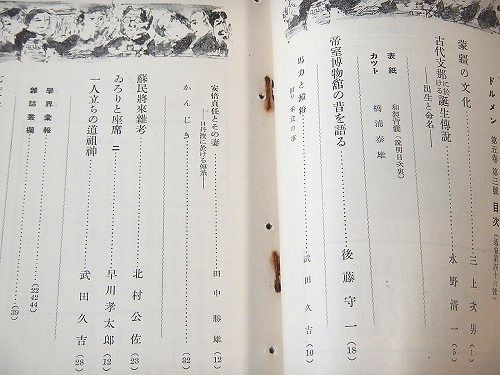 ドルメン 第五卷 第三號 目次
蒙疆の文化 三上次男 (1)
古代支那に於ける誕生傳説 水野清一 (5)
――出生と命名――
表紙 和製背囊(説明目次裏)
カツト 橋浦泰雄
帝室博物館の昔を語る 後藤守一 (18)
馬力と捕俗 武田久吉 (10)
安倍貞任とその妻 田中勝雄 (12)
――日丹後に於ける傳承――
かんじき (32)
蘇民將來雜考 北村公佐 (23)
ゐろりと座席 二 早川孝太郎 (12)
一人立ちの道祖神 武田久吉 (28)
學界彙報 (22・42・44)
雜誌叢欄 (39)